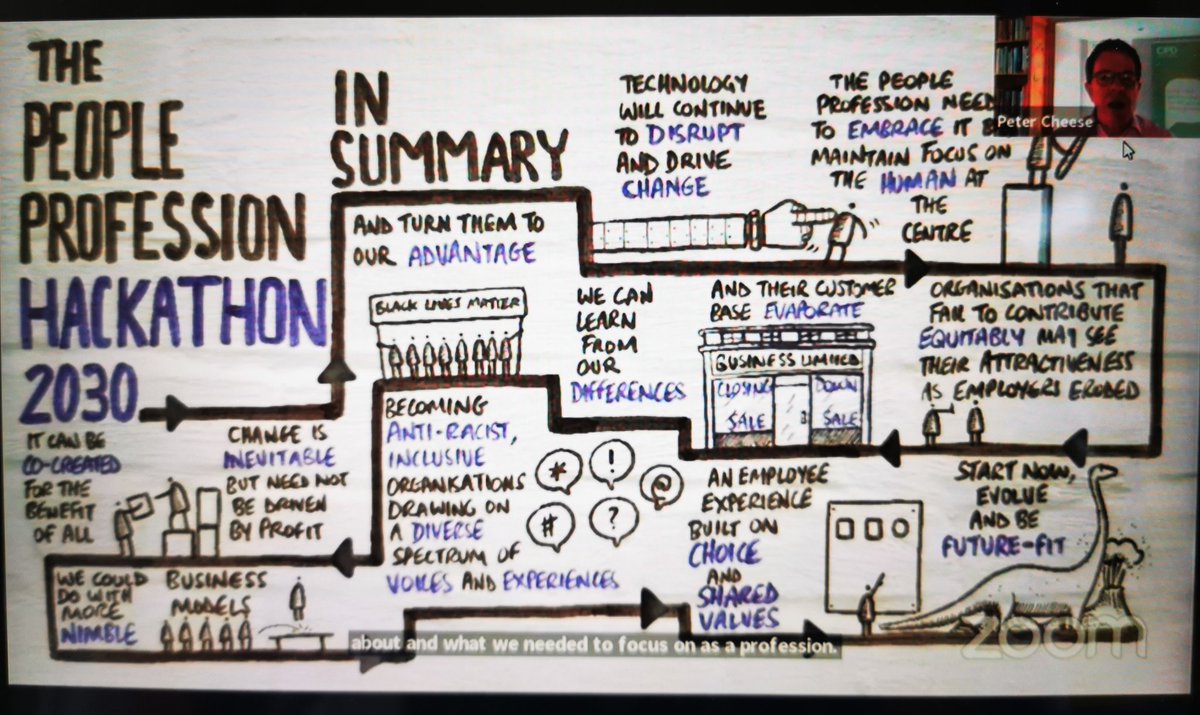 THE
PEOPLE
PROFESSION
HACKATHON
2030
IN
SUMMARY
AND TURN THEM TO
OUR ADVANTAGE
TECHNOLOGY
WILL CONTINUE
TO DISRUPT
AND DRIVE
CHANGE
THE PEOPLE
PROFESSION NEED
TO EMBRACE IT
MAINTAIN FOCUS ON
THE HUMAN AT
THE
CENTRE
CIPD
Peter Cheese
ORGANISATIONS THAT
FAIL TO CONTRIBUTE
EQUITABLY MAY SEE
THEIR ATTRACTIVENESS
AS EMPLOYERS ERODED
AND THEIR CUSTOMER
BASE EVAPORATE
BUSINESS LIMITED
CLOSING DOWN
SALE SALE
WE CAN
LEARN
FROM
OUR
DIFFERENCES
BLACK LIVES MATTER
BECOMING
ANTI-RACIST,
INCLUSIVE
ORGANISATIONS
DRAWING ON
A DIVERSE
SPECTRUM OF
VOICES AND EXPERIENCES
* ! @
# ?
CHANGE IS
INEVITABLE
BUT NEED NOT
BE DRIVEN
BY PROFIT
IT CAN BE
CO-CREATED
FOR THE
BENEFIT
OF ALL
WE COULD
DO WITH
MORE
NIMBLE
BUSINESS
MODELS
AN EMPLOYEE
EXPERIENCE
BUILT ON
CHOICE
AND
SHARED
VALUES
START NOW,
EVOLVE
AND BE
FUTURE-FIT
about and what we needed to focus on as a profession.
zoom